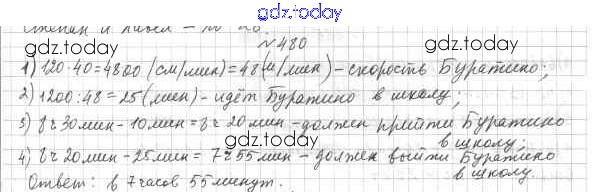 gdz.today
№ 480
gdz.today gdz.today
1) 120·40=4800 (см/мин)=48 (м/мин) - скорость Буратино;
2) 1200:48=25 (мин) - идёт Буратино в школу;
3) 8ч 30мин - 10мин = 8ч 20мин - должен прийти Буратино
в школу;
gdz.today gdz.today
4) 8ч 20мин - 25мин = 7ч 55мин - должен выйти Буратино
в школу.
Ответ: в 7 часов 55 минут.
gdz.today